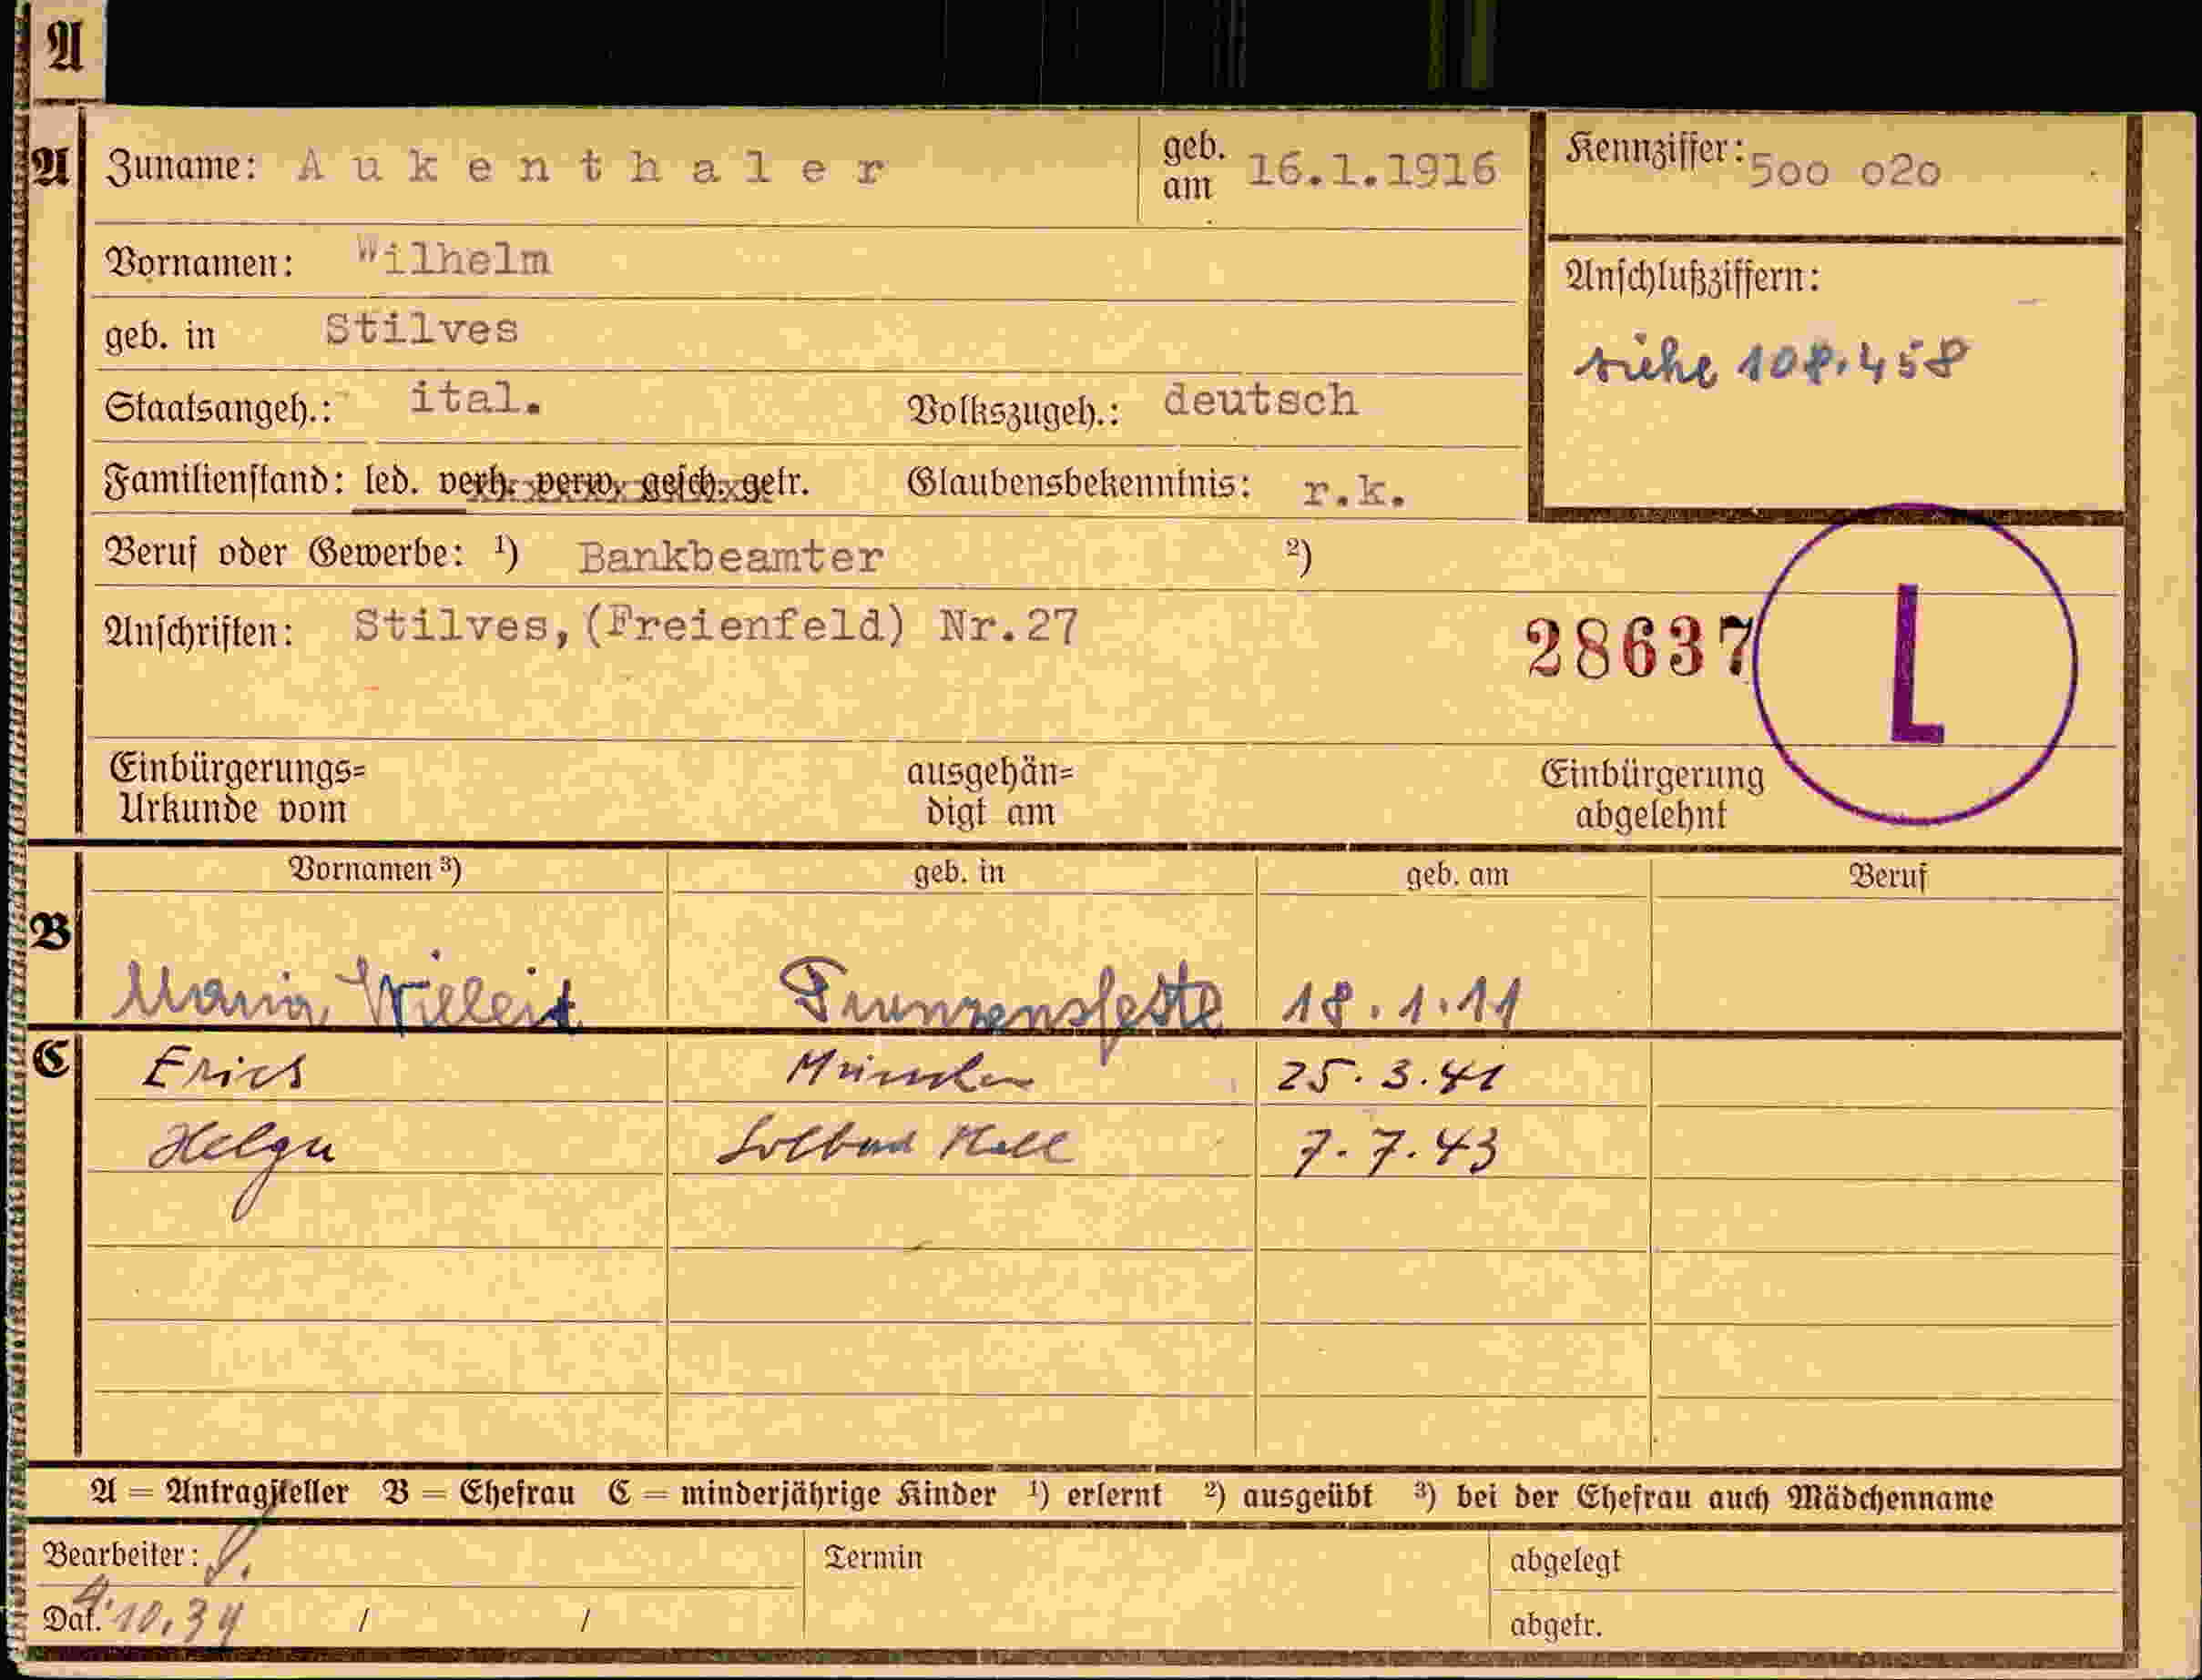 A
A Zuname: Aukenthaler geb. am 16.1.1916 Kennziffer: 500 020
Vornamen: Wilhelm
Anschlußziffern:
geb. in Stilves
siehe 108.458
Staatsangeh.: ital. Volkszugeh.: deutsch
Familienstand: led. verh. verw. gesch. getr. Glaubensbekenntnis: r.k.
Beruf oder Gewerbe: ¹) Bankbeamter ²)
Anschriften: Stilves, (Freienfeld) Nr.27
28637 L
Einbürgerungs= ausgehän= Einbürgerung
Urkunde vom digt am abgelehnt
Vornamen ³) geb. in geb. am Beruf
B Maria Willeit Franzensfeste 18.1.11
C Erich München 25.3.41
Helga Solbad Hall 7.7.43
A = Antragsteller B = Ehefrau C = minderjährige Kinder ¹) erlernt ²) ausgeübt ³) bei der Ehefrau auch Mädchenname
Bearbeiter: Termin abgelegt
Dat. 9.10.39 / / abgetr.